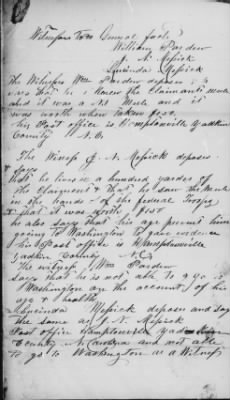 Witnesses to
William Pardew
J. N. Messick
Lucinda Messick
The Witness Wm Pardew deposes &
says that he knew the Claimants mule
and it was a No 1 Mule and it
was worth when taken $150.
his Post office is Hamptonville Yadkin
County N.C.
The Witness J. N. Messick deposes
& says
that he lives in a hundred yards of
the Claiment & that he saw the Mule
in the hands of the federal Troops
& that it was worth $150
he also says that his age prevents him
going to Washington to give evidence
his Post office is Hamptonville
Yadkin County N.C.
The witness Wm Pardew
says that he is not able to go to
Washington on the account of his
age & health
Lucinda Messick deposes and says
the same as J. N. Messick
Post office Hamptonville Yadkin
County N Carolina and not able
to go to Washington as a Witness